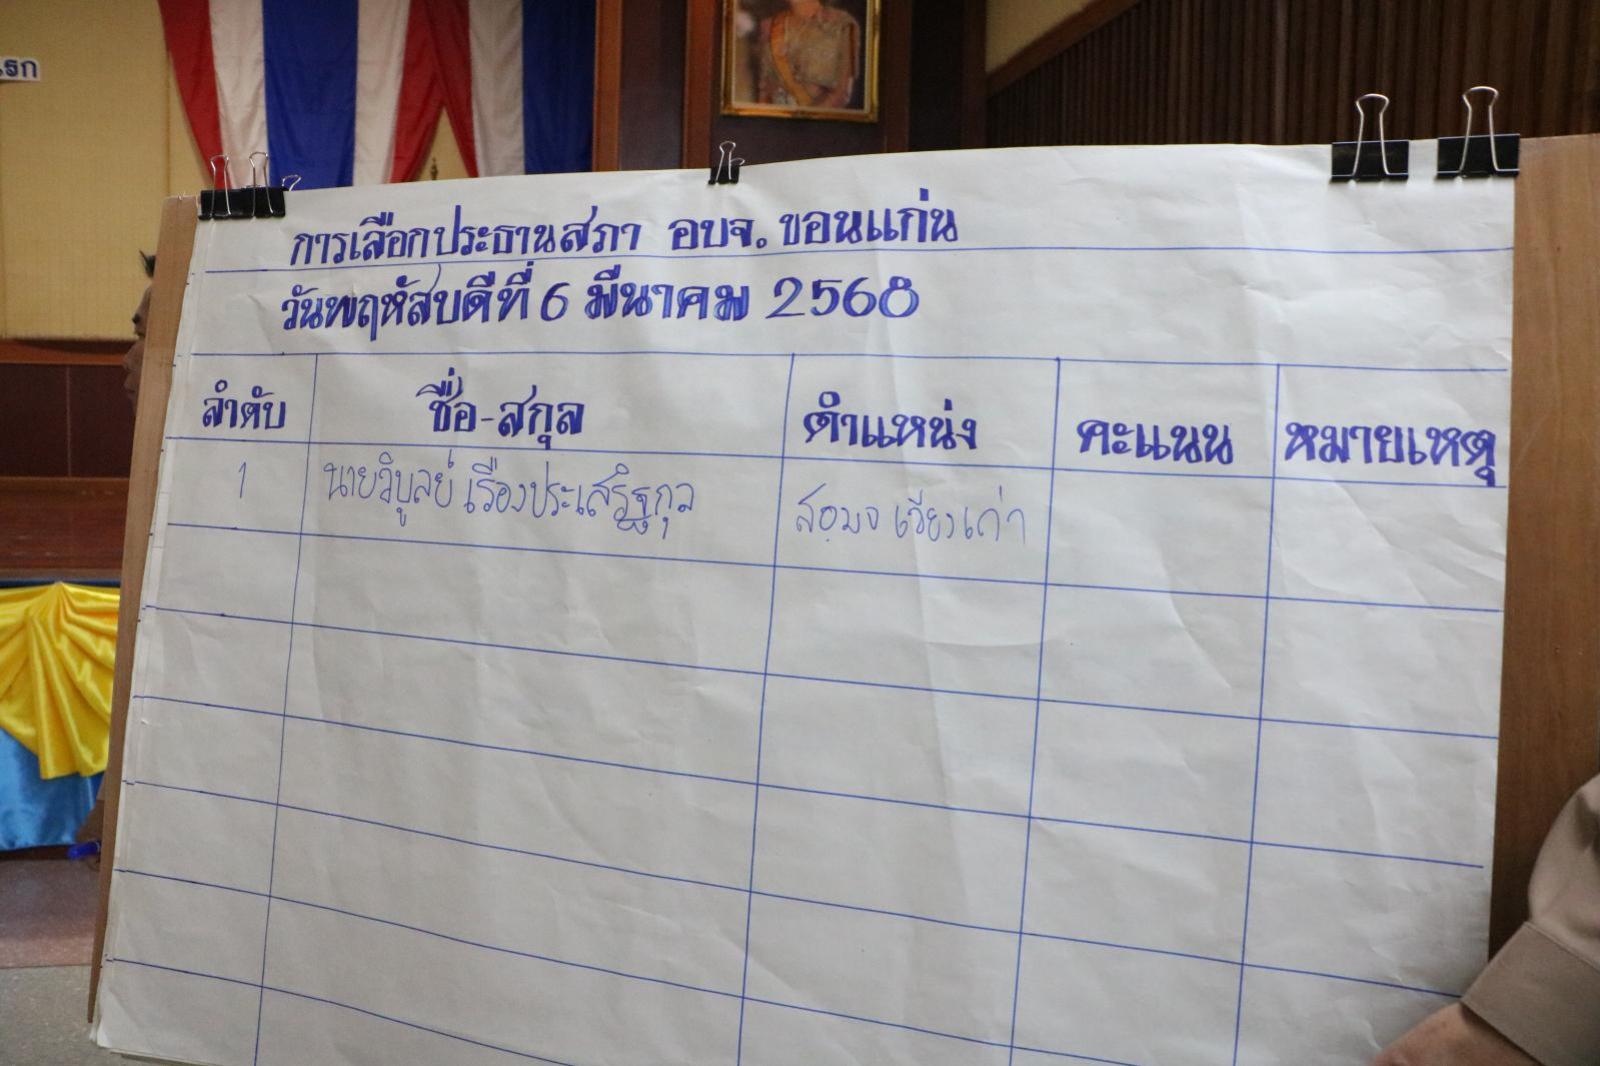 การเลือกประธานสภา อบจ. ขอนแก่น
วันพฤหัสบดีที่ 6 มีนาคม 2568
ลำดับ ชื่อ-สกุล ตำแหน่ง คะแนน หมายเหตุ
1 นายวิบูลย์ เรืองประเสริฐกุล ส.อบจ เวียงเก่า